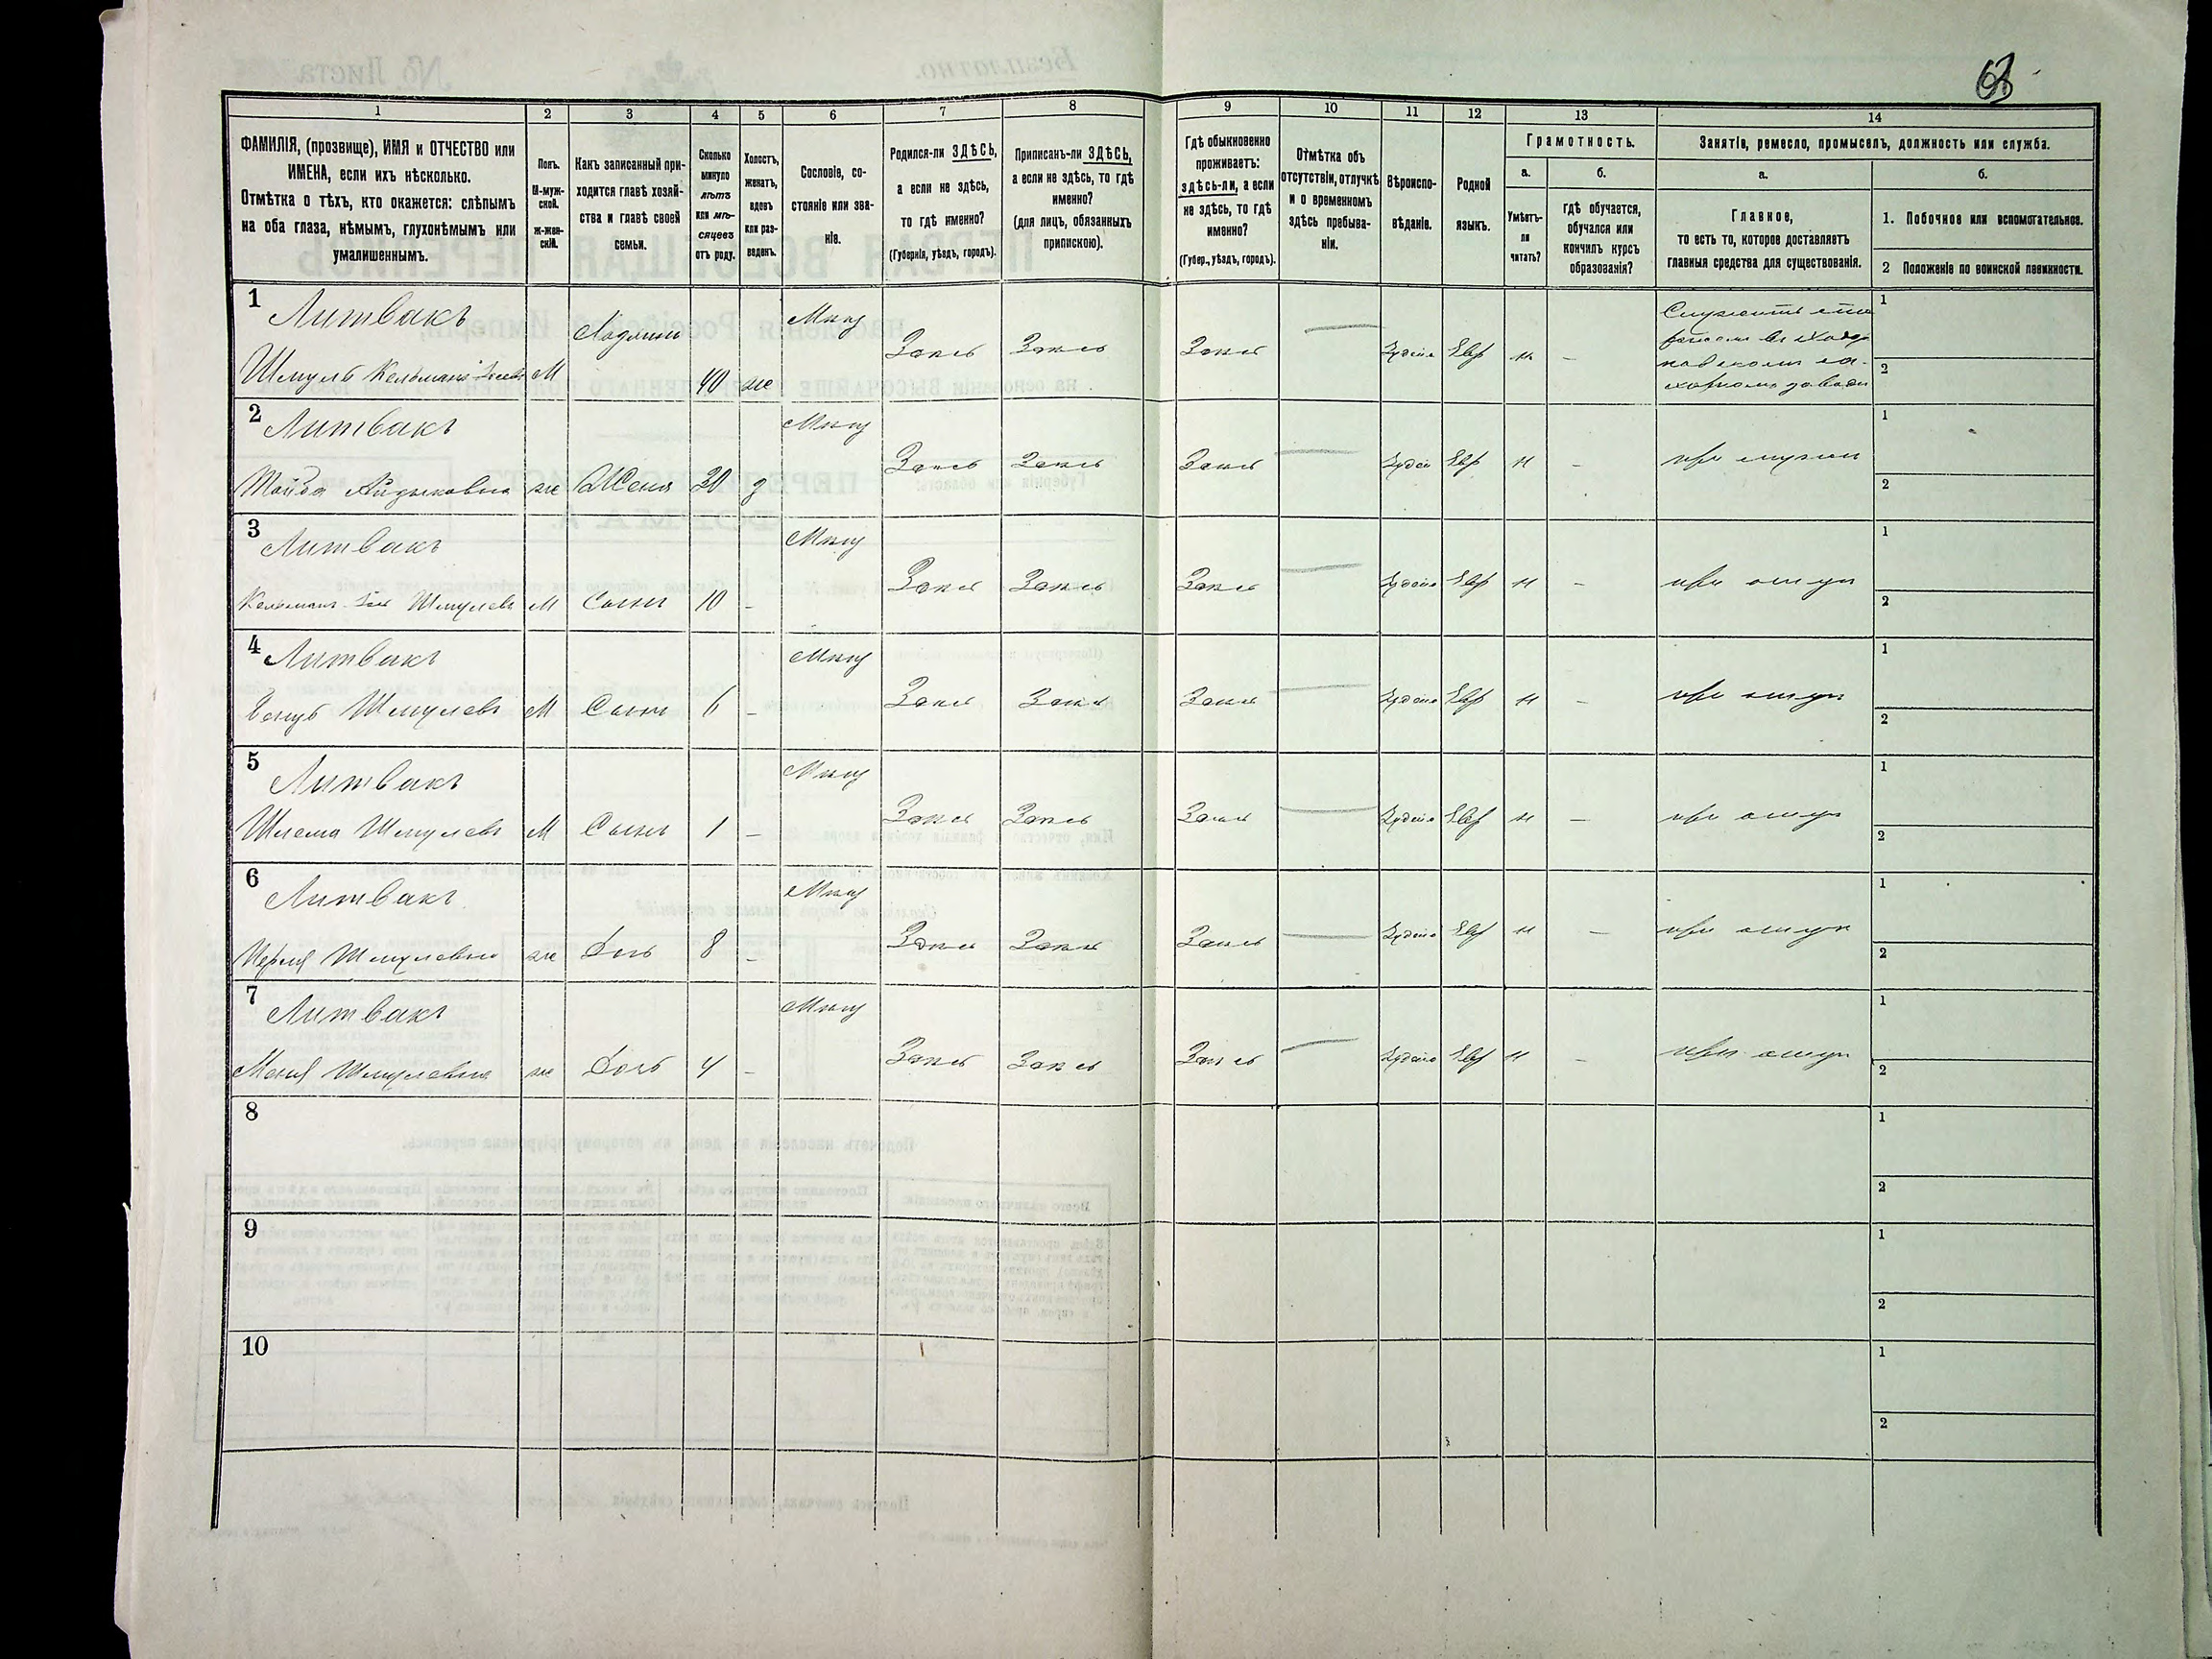 63
1
2
3
4
5
6
7
8
9
10
11
12
13
14
ФАМИЛІЯ, (прозвище), ИМЯ и ОТЧЕСТВО или
ИМЕНА, если ихъ нѣсколько.
Отмѣтка о тѣхъ, кто окажется: слѣпымъ
на оба глаза, нѣмымъ, глухонѣмымъ или
умалишеннымъ.
Полъ.
М-муж-
ской.
ж-жен-
скій.
Какъ записанный при-
ходится главѣ хозяй-
ства и главѣ своей
семьи.
Сколько
минуло
лѣтъ
или мѣ-
сяцевъ
отъ роду.
Холостъ,
женатъ,
вдовъ
или раз-
веденъ.
Сословіе, со-
стояніе или зва-
ніе.
Родился-ли ЗДѢСЬ,
а если не здѣсь,
то гдѣ именно?
(Губернія, уѣздъ, городъ).
Приписанъ-ли ЗДѢСЬ,
а если не здѣсь, то гдѣ
именно?
(для лицъ, обязанныхъ
припискою).
Гдѣ обыкновенно
проживаетъ:
здѣсь-ли, а если
не здѣсь, то гдѣ
именно?
(Губер., уѣздъ, городъ).
Отмѣтка объ
отсутствіи, отлучкѣ
и о временномъ
здѣсь пребыва-
ніи.
Вѣроиспо-
вѣданіе.
Родной
языкъ.
Грамотность.
а.
Умѣетъ-
ли
читать?
б.
гдѣ обучается,
обучался или
кончилъ курсъ
образованія?
Занятіе, ремесло, промыселъ, должность или служба.
а.
Главное,
то есть то, которое доставляетъ
главныя средства для существованія.
б.
1. Побочное или вспомогательное.
2 Положеніе по воинской повинности.
1 Литвакъ
Шмуль Кельманъ М 40 же
Мѣщ
Здѣсь Здѣсь Здѣсь
Іудейс Евр н –
1
2
2 Литвакъ
же Жена 30 з
Мѣщ
Здѣсь Здѣсь Здѣсь
Іудей Евр н – при мужѣ
1
2
3 Литвакъ
Кельманъ Шмулевъ М Сынъ 10 –
Мѣщ
Здѣсь Здѣсь Здѣсь
Іудейс Евр н – при отцѣ
1
2
4 Литвакъ
Шмулевъ М Сынъ 6 –
Мѣщ
Здѣсь Здѣсь Здѣсь
Іудейс Евр н – при отцѣ
1
2
5 Литвакъ
Шлема Шмулевъ М Сынъ 1 –
Мѣщ
Здѣсь Здѣсь Здѣсь
Іудейс Евр н – при отцѣ
1
2
6 Литвакъ
Шмулевна же Дочь 8 –
Мѣщ
Здѣсь Здѣсь Здѣсь
Іудейс Евр н – при отцѣ
1
2
7 Литвакъ
Шмулевна же Дочь 4 –
Мѣщ
Здѣсь Здѣсь Здѣсь
Іудейс Евр н – при отцѣ
1
2
8
1
2
9
1
2
10
1
2